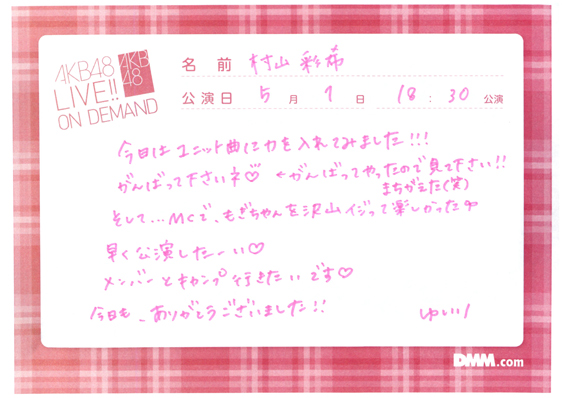 AKB48
LIVE!!
ON DEMAND
AKB
48
名前 村山 彩希
公演日 5月7日 18:30公演
今日はユニット曲に力を入れてみました!!!
がんばって下さいネ♡ ←がんばってやったので見て下さい!!
まちがえた(笑)
そして...MCで、もぎちゃんを沢山イジって楽しかった
早く公演したーい♡
メンバーとキャンプ行きたいです♡
今日も、ありがとうございました!!
ゆいり
DMM.com